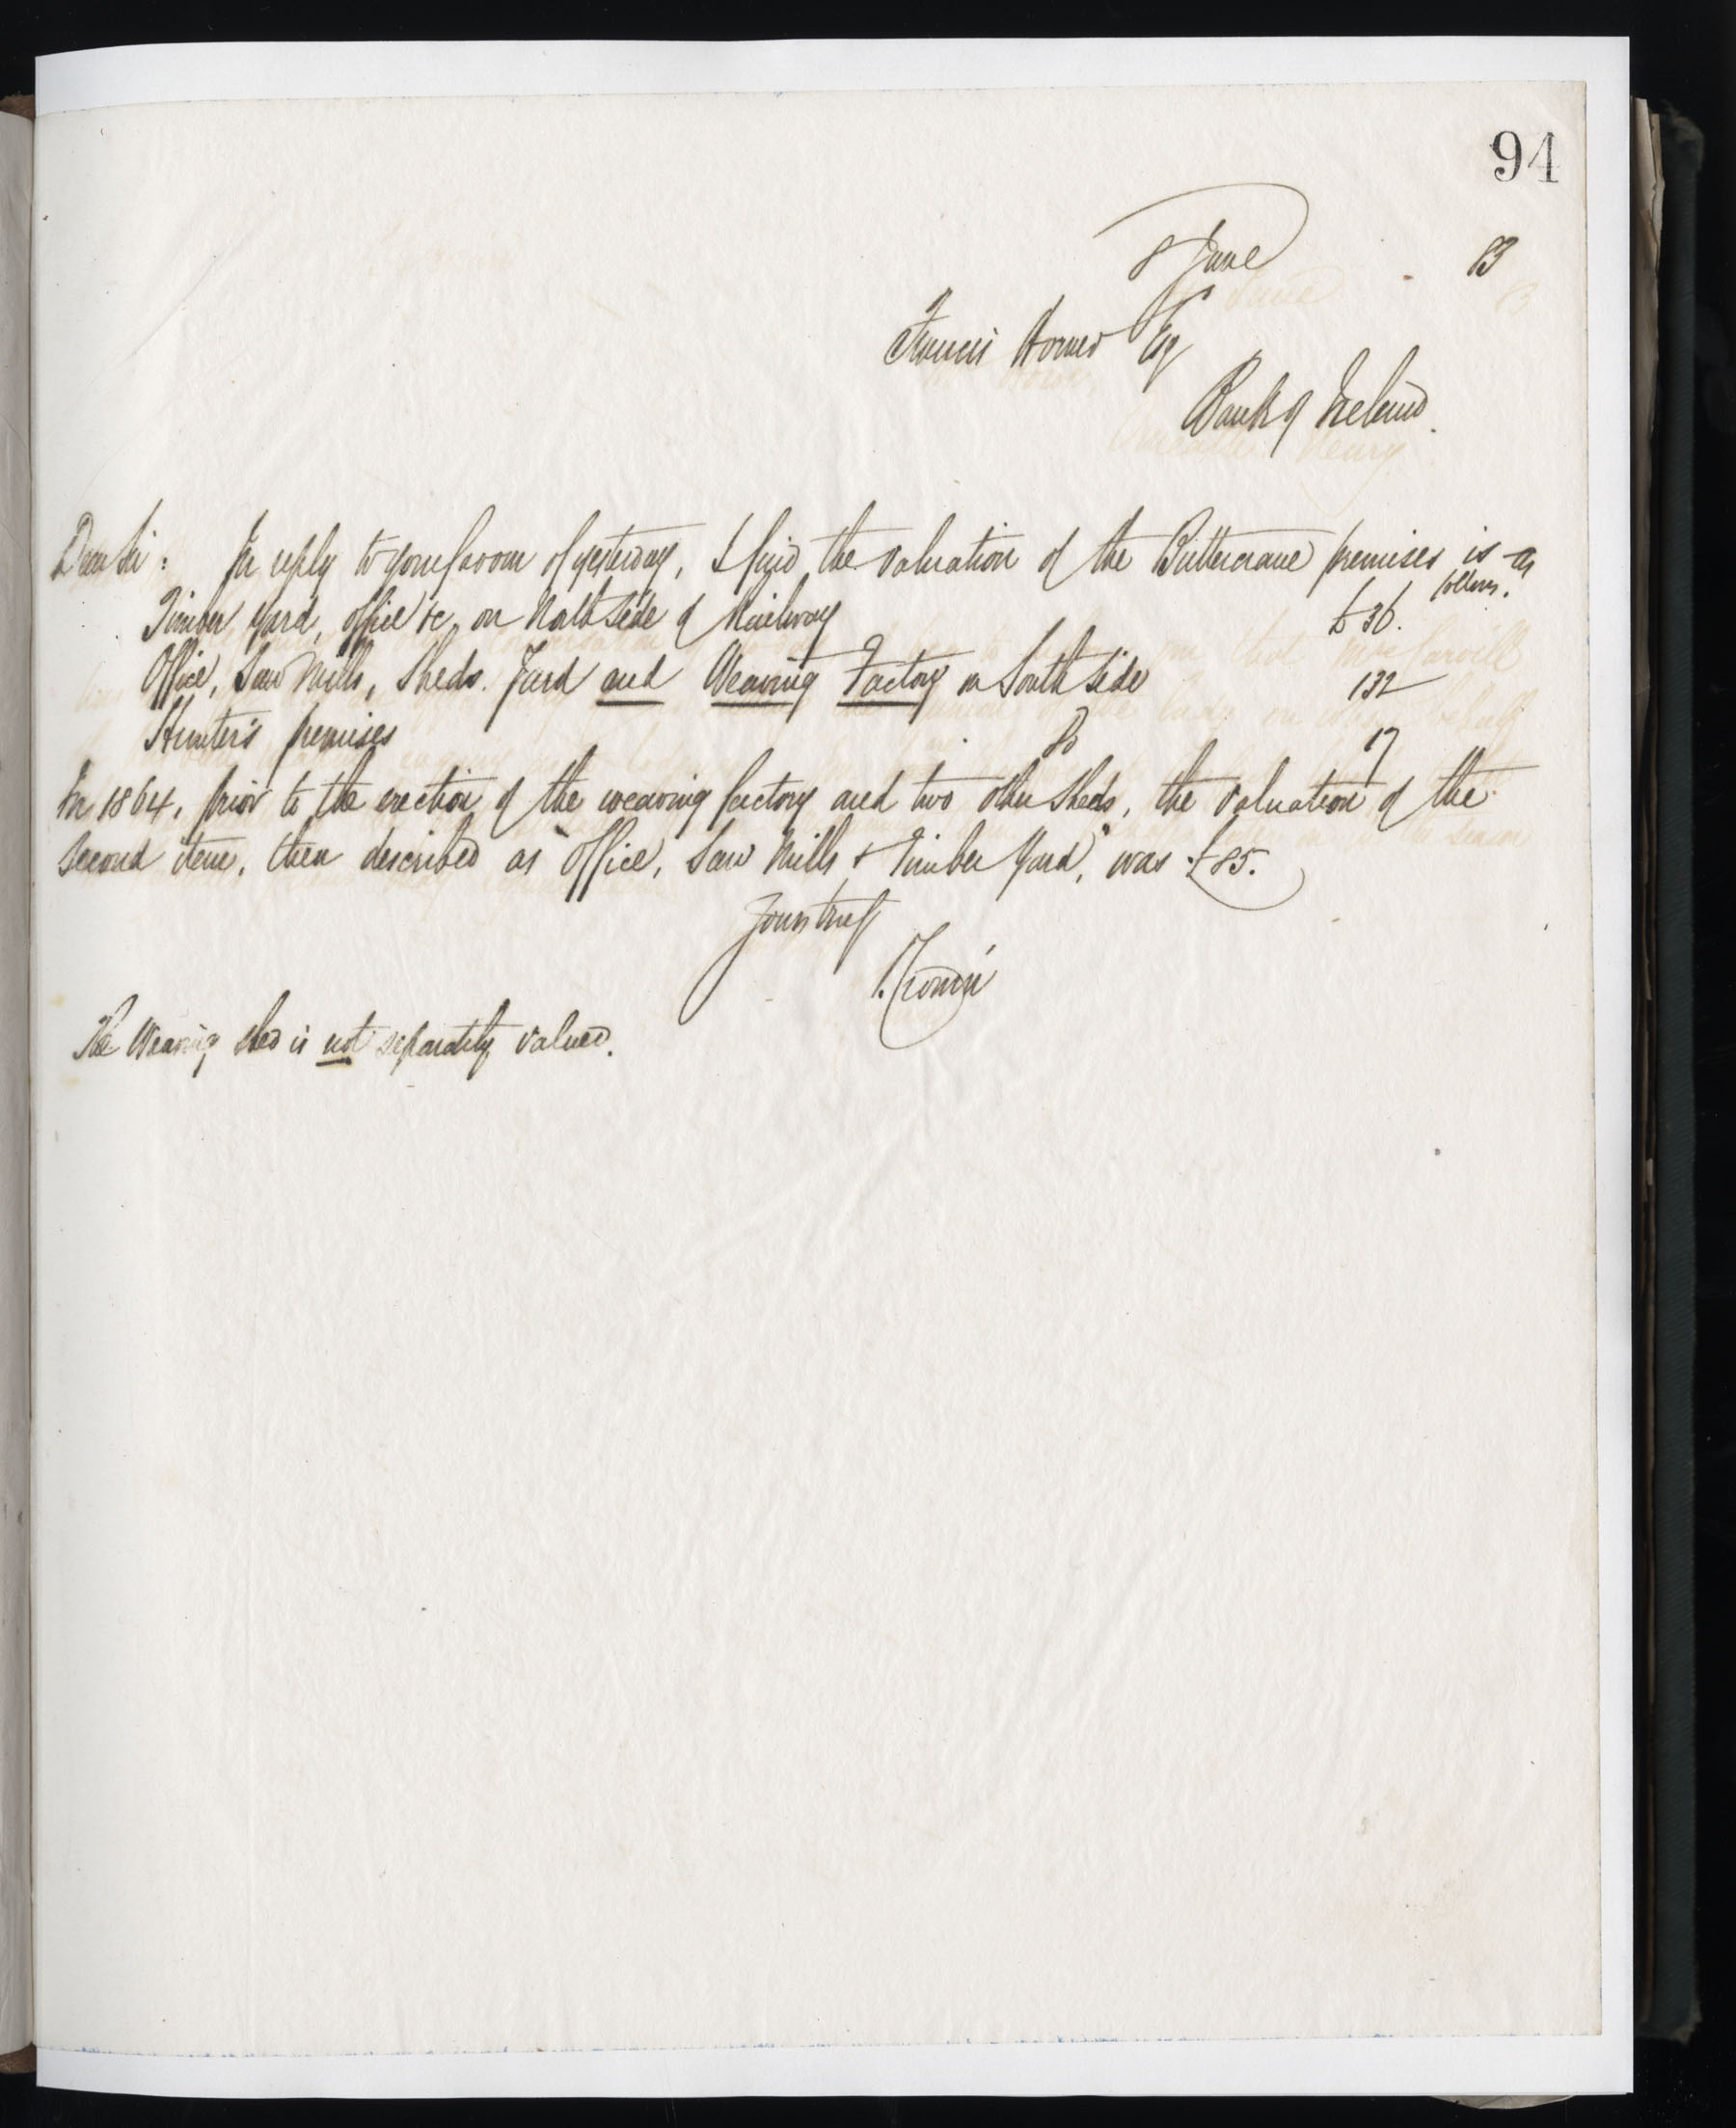 94
8 June 83
Francis Horner Esq
Bank of Ireland.
Dear Sir: In reply to your favour of yesterday, I find the valuation of the Buttercrane premises is as
follows.
Timber Yard, Office &c, on North Side of Railway £36.
Office, Saw Mills, Sheds. Yard and Weaving Factory on South Side 132
Hunter's premises Do 17
In 1864, prior to the erection of the weaving factory and two other sheds, the valuation of the
second item, then described as "Office, Saw Mills & Timber Yard," was £85.
Yours truly
The Weaving shed is not separately valued.